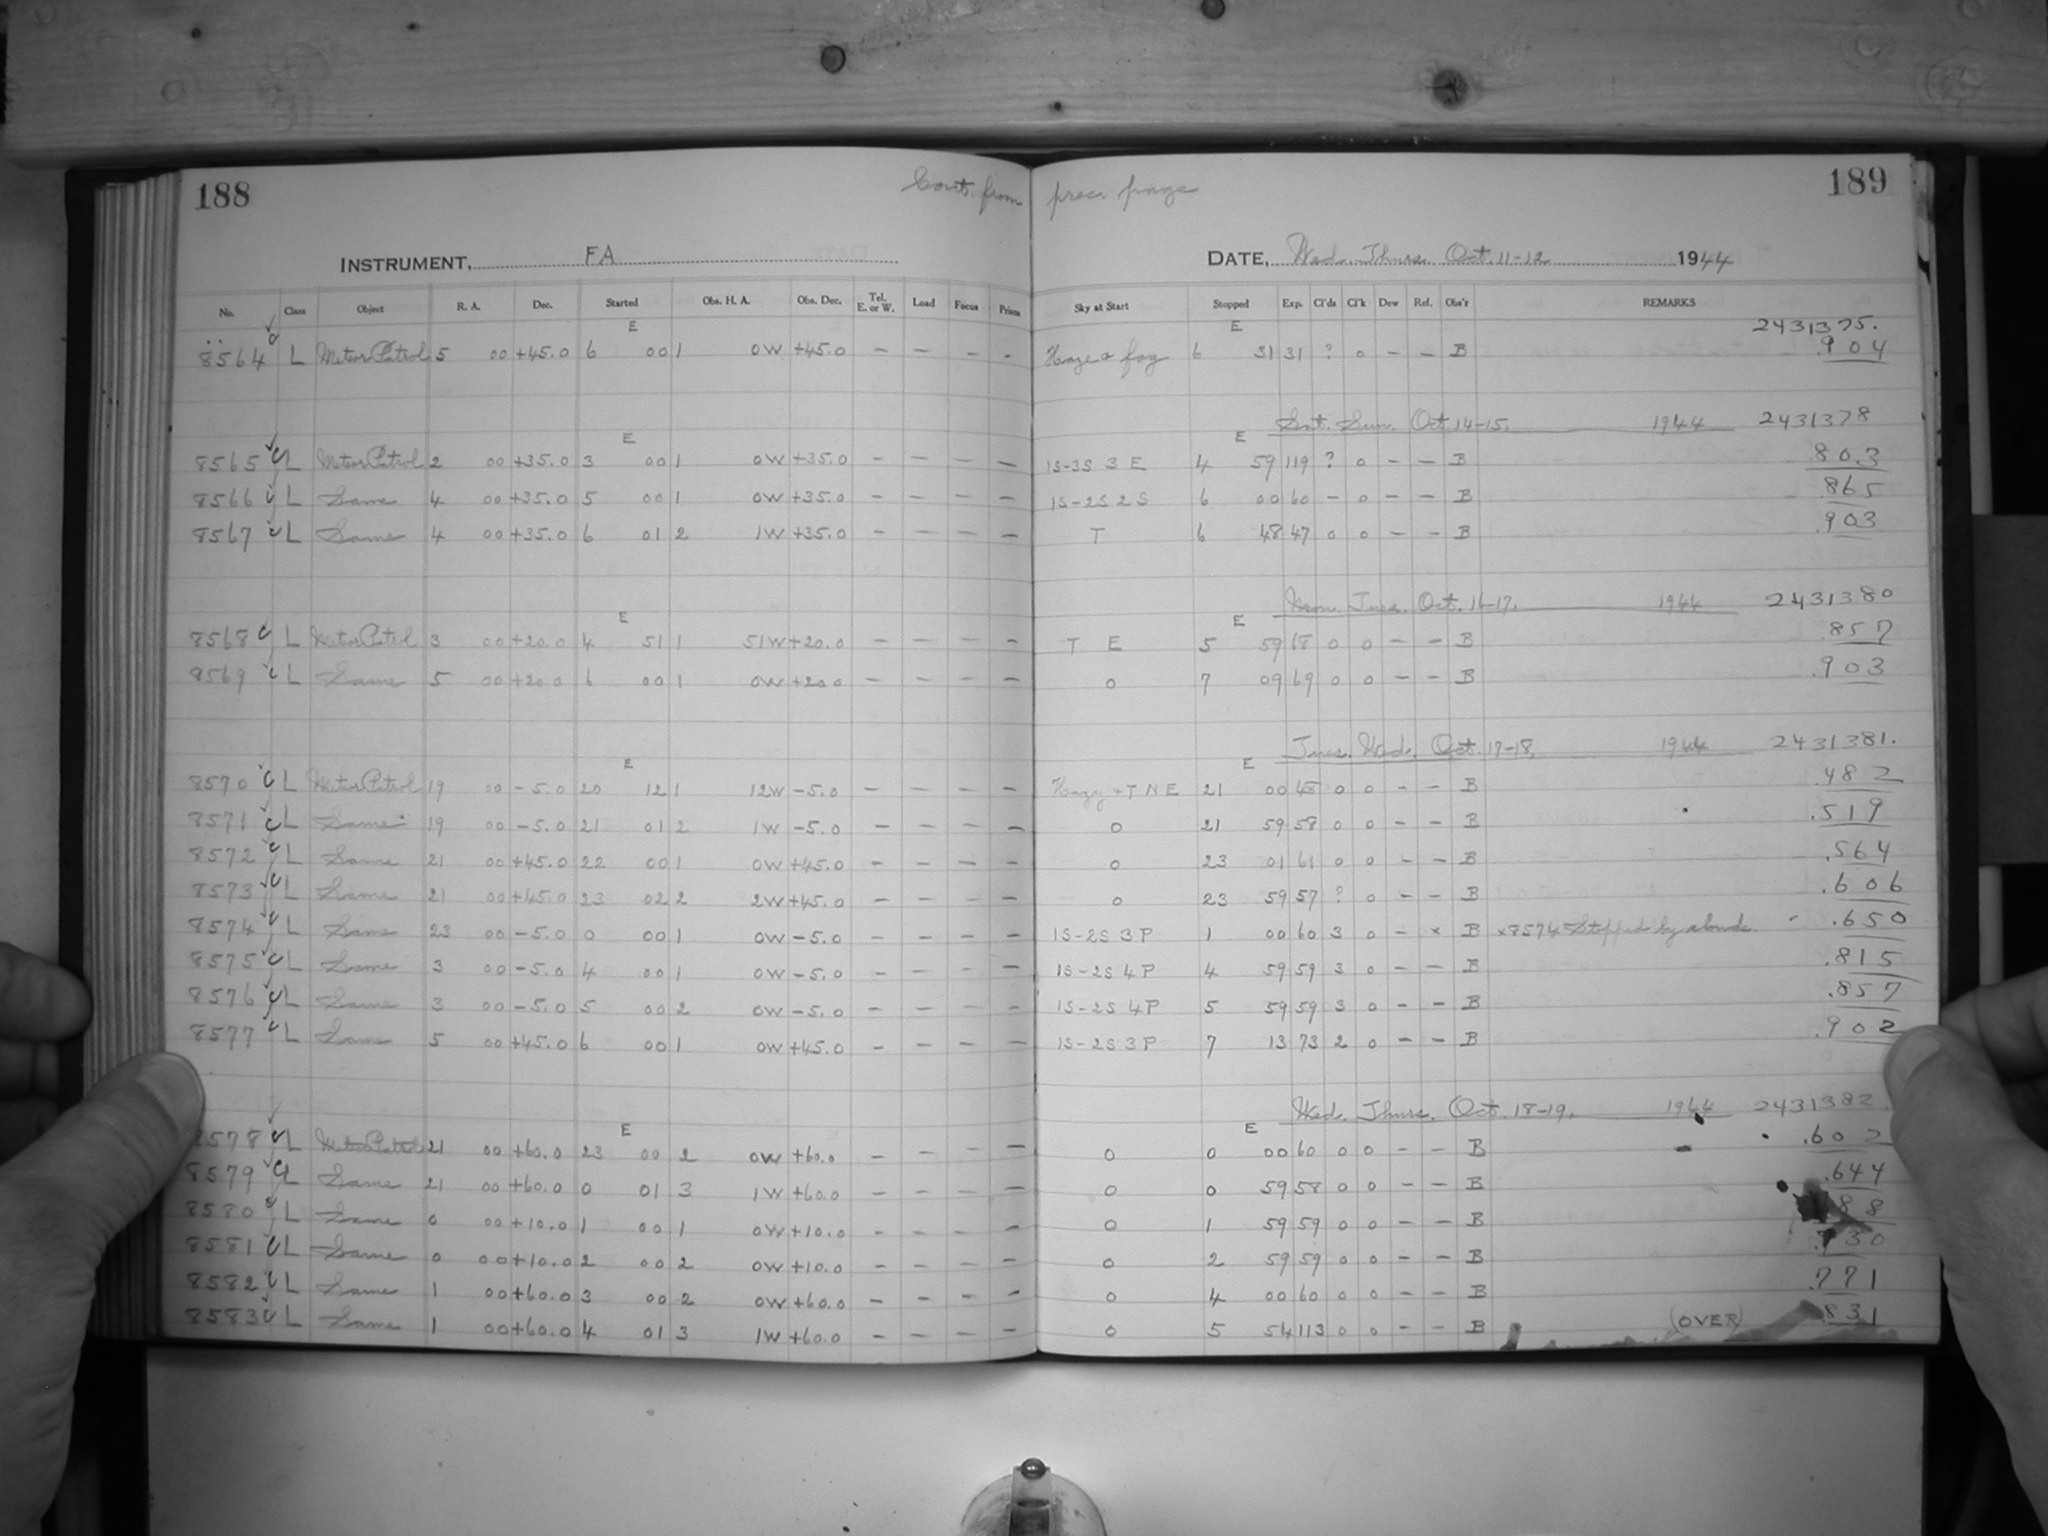 188 Cont. from prec. page 189
INSTRUMENT, FA DATE, Wed. Thurs. Oct. 11-12 1944
No. Class Object R. A. Dec. Started Obs. H. A. Obs. Dec. Tel. E. or W. Load Focus Prism Sky at Start Stopped Exp. Cl'ds Cl'k Dew Ref. Obs'r REMARKS
E E 2431375.
8564 L Meteor Patrol 5 00 +45.0 6 00 1 0W +45.0 – – – – Haze & fog 6 31 31 ? 0 – – B .904
Sat. Sun. Oct. 14-15. 1944 2431378
E E
8565 L Meteor Patrol 2 00 +35.0 3 00 1 0W +35.0 – – – – 1S-3S 3 E 4 59 119 ? 0 – – B .803
8566 L Same 4 00 +35.0 5 00 1 0W +35.0 – – – – 1S-2S 2 S 6 00 60 – 0 – – B .865
8567 L Same 4 00 +35.0 6 01 2 1W +35.0 – – – – T 6 48 47 0 0 – – B .903
Mon. Tues. Oct. 16-17. 1944 2431380
E E
8568 L Meteor Patrol 3 00 +20.0 4 51 1 51W +20.0 – – – – T E 5 59 68 0 0 – – B .857
8569 L Same 5 00 +20.0 6 00 1 0W +20.0 – – – – 0 7 09 69 0 0 – – B .903
Tues. Wed. Oct. 17-18. 1944 2431381.
E E
8570 L Meteor Patrol 19 00 -5.0 20 12 1 12W -5.0 – – – – Hazy + T N E 21 00 48 0 0 – – B .482
8571 L Same 19 00 -5.0 21 01 2 1W -5.0 – – – – 0 21 59 58 0 0 – – B .519
8572 L Same 21 00 +45.0 22 00 1 0W +45.0 – – – – 0 23 01 61 0 0 – – B .564
8573 L Same 21 00 +45.0 23 02 2 2W +45.0 – – – – 0 23 59 57 ? 0 – – B .606
8574 L Same 23 00 -5.0 0 00 1 0W -5.0 – – – – 1S-2S 3 P 1 00 60 3 0 – x B x8574 Stopped by clouds. .650
8575 L Same 3 00 -5.0 4 00 1 0W -5.0 – – – – 1S-2S 4 P 4 59 59 3 0 – – B .815
8576 L Same 3 00 -5.0 5 00 2 0W -5.0 – – – – 1S-2S 4P 5 59 59 3 0 – – B .857
8577 L Same 5 00 +45.0 6 00 1 0W +45.0 – – – – 1S-2S 3 P 7 13 73 2 0 – – B .902
Wed. Thurs. Oct. 18-19. 1944 2431382.
E E
8578 L Meteor Patrol 21 00 +60.0 23 00 2 0W +60.0 – – – – 0 0 00 60 0 0 – – B .602
8579 L Same 21 00 +60.0 0 01 3 1W +60.0 – – – – 0 0 59 58 0 0 – – B .644
8580 L Same 0 00 +10.0 1 00 1 0W +10.0 – – – – 0 1 59 59 0 0 – – B 88
8581 L Same 0 00 +10.0 2 00 2 0W +10.0 – – – – 0 2 59 59 0 0 – – B .730
8582 L Same 1 00 +60.0 3 00 2 0W +60.0 – – – – 0 4 00 60 0 0 – – B .771
8583 L Same 1 00 +60.0 4 01 3 1W +60.0 – – – – 0 5 54 113 0 0 – – B (OVER) .831